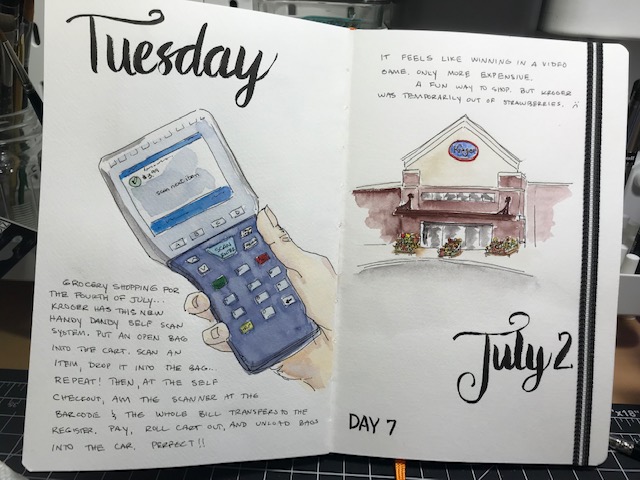 Tuesday
$3.99
scan next item
SCAN
GROCERY SHOPPING FOR
THE FOURTH OF JULY...
KROGER HAS THIS NEW
HANDY DANDY SELF SCAN
SYSTEM. PUT AN OPEN BAG
INTO THE CART. SCAN AN
ITEM, DROP IT INTO THE BAG..
REPEAT! THEN, AT THE SELF
CHECKOUT, AIM THE SCANNER AT THE
BARCODE & THE WHOLE BILL TRANSFERS TO THE
REGISTER. PAY, ROLL CART OUT, AND UNLOAD BAGS
INTO THE CAR. PERFECT!!
IT FEELS LIKE WINNING IN A VIDEO
GAME. ONLY MORE EXPENSIVE.
A FUN WAY TO SHOP. BUT KROGER
WAS TEMPORARILY OUT OF STRAWBERRIES.
Kroger
July 2
DAY 7